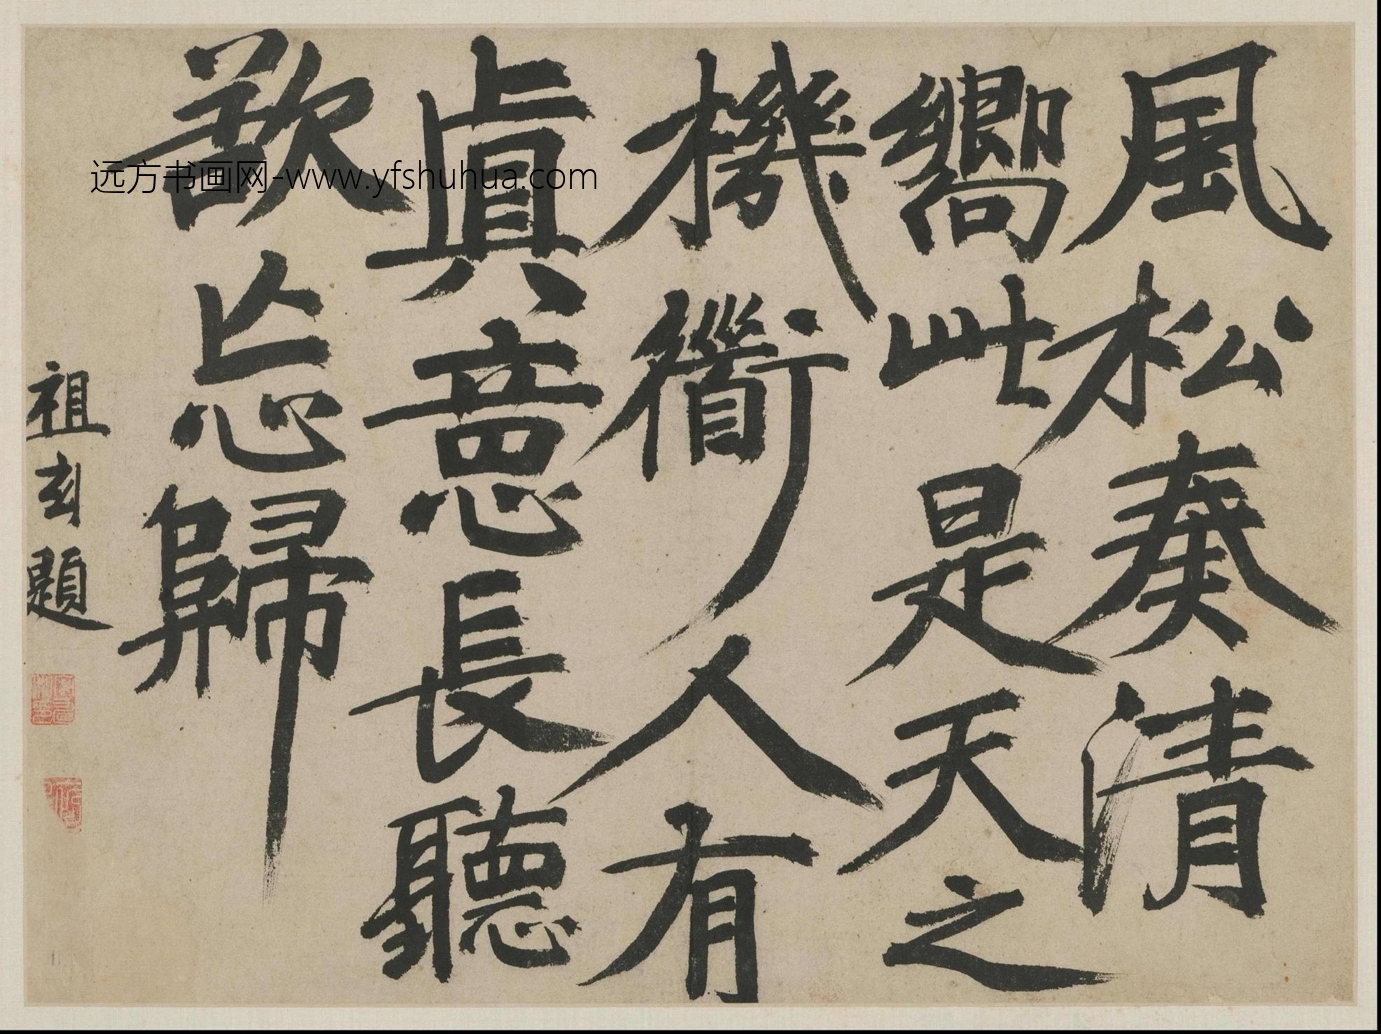 風松奏清
嚮此是天之
機衜人有
眞意長聽
欲忘歸
祖題
远方书画网-www.yfshuhua.com